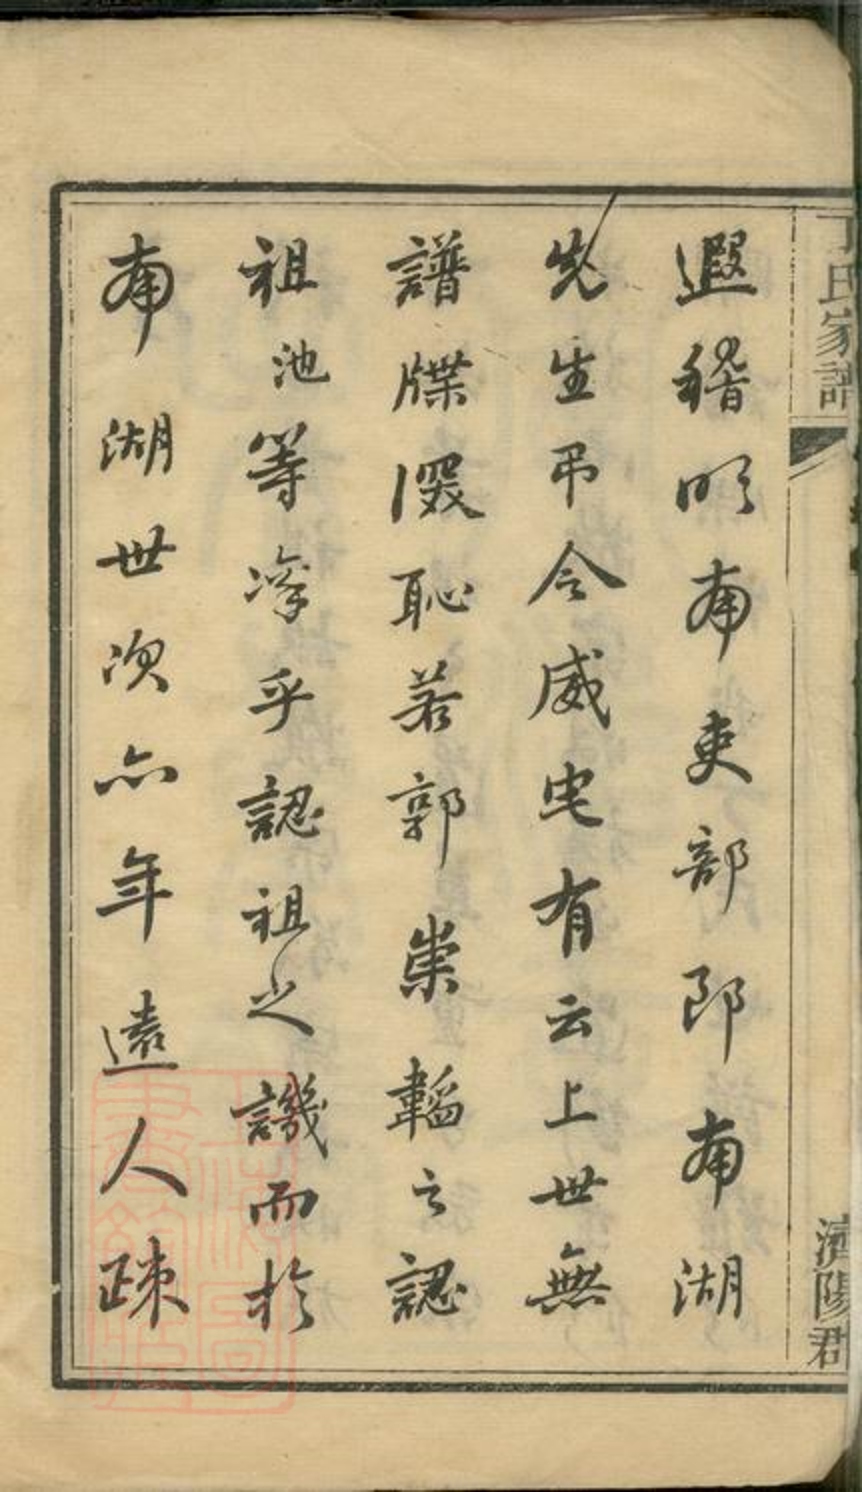 丁氏家譜
濟陽郡
遐稽明南吏部郎南湖
先生弔令威宅有云上世無
譜牒深恥若郭崇韜之認
祖池等凛乎認祖之譏而於
南湖世次亦年遠人疎